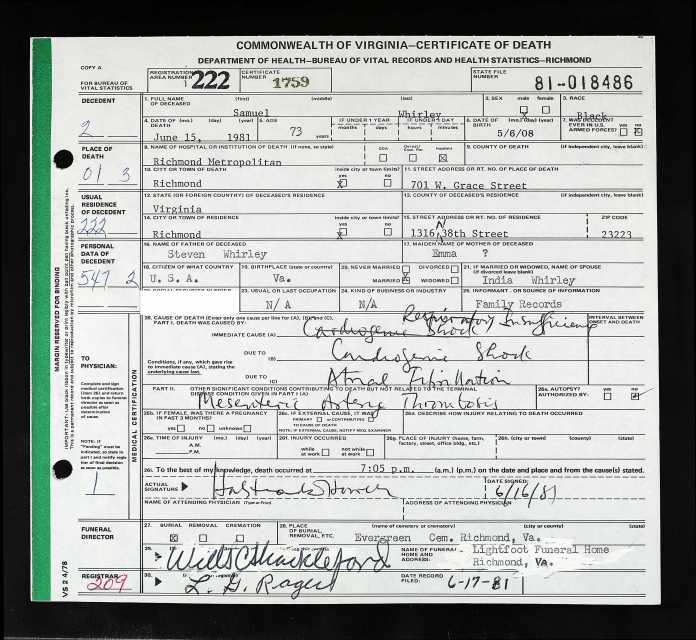 COMMONWEALTH OF VIRGINIA—CERTIFICATE OF DEATH
DEPARTMENT OF HEALTH—BUREAU OF VITAL RECORDS AND HEALTH STATISTICS—RICHMOND
COPY A
FOR BUREAU OF VITAL STATISTICS
REGISTRATION AREA NUMBER 222 CERTIFICATE NUMBER 1759 STATE FILE NUMBER 81-018486
DECEDENT
1. FULL NAME OF DECEASED (first) (middle) (last) 2. SEX male female 3. RACE
Samuel Whirley X Black
4. DATE OF DEATH (mo.) (day) (year) 5. AGE IF UNDER 1 YEAR IF UNDER 1 DAY 6. DATE OF BIRTH (mo.) (day) (year) 7. WAS DECEDENT EVER IN U.S. ARMED FORCES? yes no
June 15, 1981 73 years months days hours minutes 5/6/08
2
PLACE OF DEATH
8. NAME OF HOSPITAL OR INSTITUTION OF DEATH (if none, so state) DOA Inpatient 9. COUNTY OF DEATH (if independent city, leave blank)
Richmond Metropolitan X
01 3
10. CITY OR TOWN OF DEATH inside city or town limits? yes no 11. STREET ADDRESS OR RT. NO. OF PLACE OF DEATH
Richmond X 701 W. Grace Street
USUAL RESIDENCE OF DECEDENT
12. STATE (OR FOREIGN COUNTRY) OF DECEASED'S RESIDENCE 13. COUNTY OF DECEASED'S RESIDENCE (if independent city, leave blank)
Virginia
222
14. CITY OR TOWN OF RESIDENCE inside city or town limits? yes no 15. STREET ADDRESS OR RT. NO. OF RESIDENCE ZIP CODE
Richmond X 1316 N 38th Street 23223
PERSONAL DATA OF DECEDENT
16. NAME OF FATHER OF DECEASED 17. MAIDEN NAME OF MOTHER OF DECEASED
Steven Whirley Emma ?
547 2
18. CITIZEN OF WHAT COUNTRY 19. BIRTHPLACE (state or country) 20. NEVER MARRIED DIVORCED MARRIED WIDOWED 21. IF MARRIED OR WIDOWED, NAME OF SPOUSE (if divorced leave blank)
U. S. A. Va. X India Whirley
23. USUAL OR LAST OCCUPATION 24. KIND OF BUSINESS OR INDUSTRY 25. INFORMANT - OR SOURCE OF INFORMATION
N/A N/A Family Records
MARGIN RESERVED FOR BINDING
MEDICAL CERTIFICATION
26. CAUSE OF DEATH (Enter only one cause per line for (A), (B) and (C). INTERVAL BETWEEN ONSET AND DEATH
PART I. DEATH WAS CAUSED BY: Respiratory Insufficiency
IMMEDIATE CAUSE (A) Cardiogenic Shock
TO PHYSICIAN:
Conditions, if any, which gave rise to immediate cause (A), stating the underlying cause last.
DUE TO (B) Cardiogenic Shock
DUE TO (C) Atrial Fibrillation
Complete and sign medical certification (item 26) and return both copies to funeral director as soon as possible after determination of cause.
PART II. OTHER SIGNIFICANT CONDITIONS CONTRIBUTING TO DEATH BUT NOT RELATED TO THE TERMINAL DISEASE CONDITION GIVEN IN PART I (A) 26a. AUTOPSY? AUTHORIZED BY: yes no
Mesenteric Artery Thrombosis
26b. IF FEMALE, WAS THERE A PREGNANCY IN PAST 3 MONTHS? yes no unknown 26c. IF EXTERNAL CAUSE, IT WAS PRIMARY or CONTRIBUTING TO CAUSE OF DEATH 26d. DESCRIBE HOW INJURY RELATING TO DEATH OCCURRED
NOTE: IF EXTERNAL CAUSE, NOTIFY MED. EXAMINER
NOTE: If "Pending" must be indicated, so state in part I and notify registrar of final decision as soon as possible.
26e. TIME OF INJURY (mo.) (day) (year) A.M. P.M. 26f. INJURY OCCURRED while at work not while at work 26g. PLACE OF INJURY (home, farm, factory, street, office bldg., etc.) 26h. (city or town) (county) (state)
26i. To the best of my knowledge, death occurred at 7:05 p.m. (a.m.) (p.m.) on the date and place and from the cause(s) stated.
1
ACTUAL SIGNATURE DATE SIGNED: 6/16/81
NAME OF ATTENDING PHYSICIAN (Type or Print) ADDRESS OF ATTENDING PHYSICIAN
FUNERAL DIRECTOR
27. BURIAL REMOVAL CREMATION 28. PLACE OF BURIAL, REMOVAL, ETC. (name of cemetery or crematory) (city or county) (state)
X Evergreen Cem. Richmond, Va.
29. Wills C Shackleford NAME OF FUNERAL HOME AND ADDRESS: Lightfoot Funeral Home
Richmond, Va.
REGISTRAR
209
30. DATE RECORD FILED: 6-17-81
VS 2 4/78